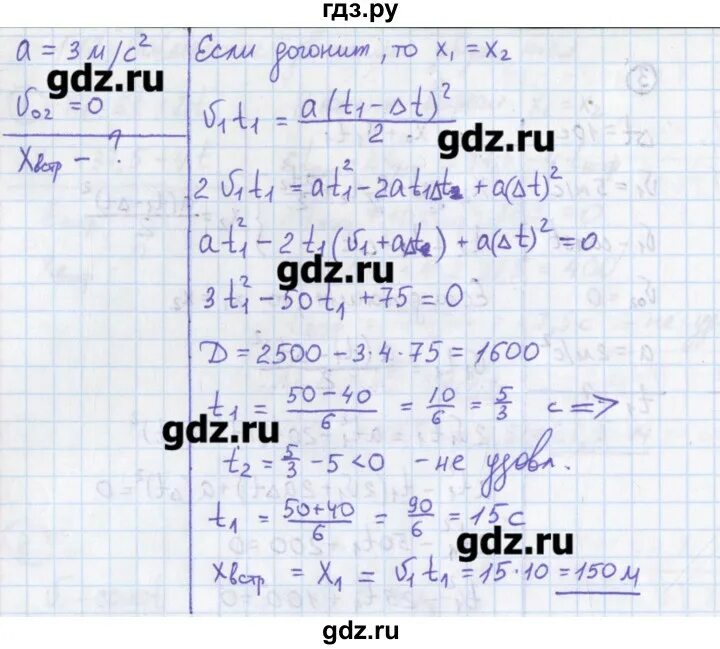 гдз.ру
a = 3 м/с²
gdz.ru
υ₀₂ = 0
Xвстр – ?
Если догонит, то x₁ = x₂
υ₁t₁ = a(t₁ – Δt)² / 2
gdz.ru
2υ₁t₁ = at₁² – 2at₁Δt + a(Δt)²
at₁² – 2t₁(υ₁ + aΔt) + a(Δt)² = 0
gdz.ru
3t₁² – 50t₁ + 75 = 0
D = 2500 – 3·4·75 = 1600
t₁ = (50 – 40)/6 = 10/6 = 5/3 с =>
gdz.ru
t₂ = 5/3 – 5 < 0 – не удовл.
t₁ = (50 + 40)/6 = 90/6 = 15 с
gdz.ru
Xвстр = X₁ = υ₁t₁ = 15·10 = 150 м
gdz.ru